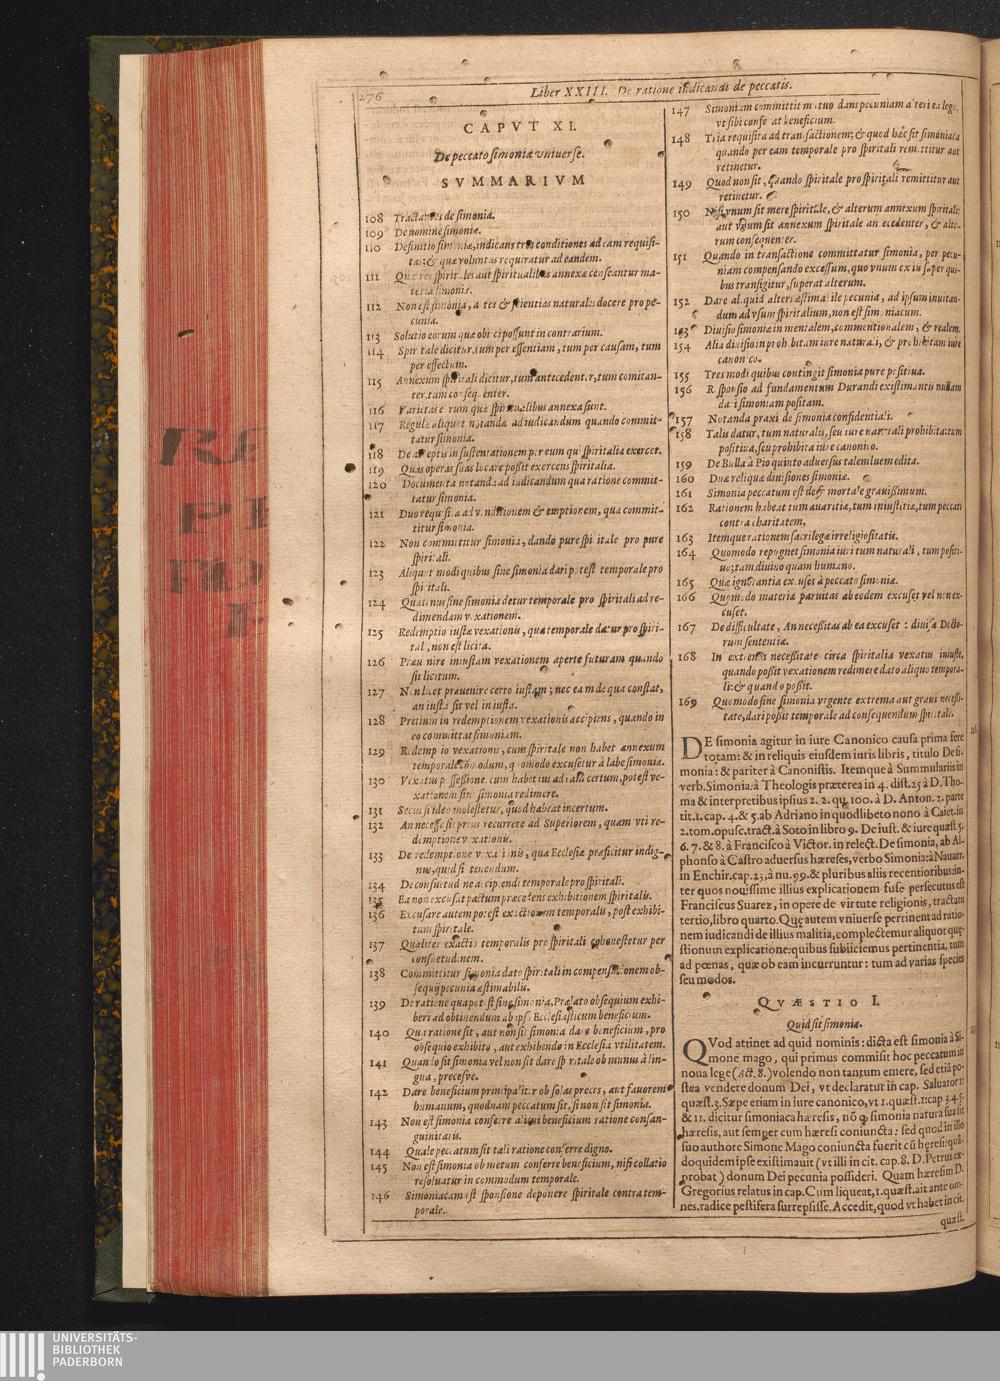 276
Liber XXIII. De ratione iudicandi de peccatis.
CAPVT XI.
De peccato simoniæ vniuerse.
SVMMARIVM
108 Tractantes de simonia.
109 De nomine simoniæ.
110 Definitio simoniæ, indicans tres conditiones ad eam requisi-
tas; & quæ voluntas requiratur ad eandem.
111 Quæ res spiritales aut spiritualibus annexæ censeantur ma-
teria simoniæ.
112 Non est simonia, artes & scientias naturales docere pro pe-
cunia.
113 Solutio eorum quæ obiici possunt in contrarium.
114 Spiritale dicitur, tum per essentiam, tum per causam, tum
per effectum.
115 Annexum spiritali dicitur, tum antecedenter, tum comitan-
ter, tum consequenter.
116 Varietas rerum quæ spiritualibus annexa sunt.
117 Regulæ aliquot notandæ ad iudicandum quando commit-
tatur simonia.
118 De acceptis in sustentationem per eum qui spiritalia exercet.
119 Quas operas suas locare possit exercens spiritalia.
120 Documenta notanda ad iudicandum qua ratione commit-
tatur simonia.
121 Duo requisita ad venditionem & emptionem, qua commit-
titur simonia.
122 Non committitur simonia, dando pure spiritale pro pure
spiritali.
123 Aliquot modi quibus sine simonia dari potest temporale pro
spiritali.
124 Quatenus sine simonia detur temporale pro spiritali ad re-
dimendam vexationem.
125 Redemptio iustæ vexationis, qua temporale datur pro spiri-
tali, non est licita.
126 Præuenire iniustam vexationem aperte futuram quando
sit licitum.
127 Non licet præuenire certo iustam; nec eam de qua constat,
an iusta sit vel iniusta.
128 Pretium in redemptionem vexationis accipiens, quando in
eo committat simoniam.
129 Redemptio vexationis, cum spiritale non habet annexum
temporale commodum, quomodo excusetur à labe simoniæ.
130 Vexatus possessione, cum habet ius ad rem certum, potest ve-
xationem sine simonia redimere.
131 Secus si ideo molestetur, quod habeat incertum.
132 An necesse sit prius recurrere ad Superiorem, quam vti re-
demptione vexationis.
133 De redemptione vexationis, qua Ecclesiæ præficitur indig-
nus, quid sit tenendum.
134 De consuetudine accipiendi temporale pro spiritali.
135 Ea non excusat pactum præcedens exhibitionem spiritalis.
136 Excusare autem potest exactionem temporalis, post exhibi-
tum spiritale.
137 Qualiter exactio temporalis pro spiritali cohonestetur per
consuetudinem.
138 Committitur simonia dato spiritali in compensationem ob-
sequij pecunia æstimabilis.
139 De ratione qua potest sine simonia, Prælato obsequium exhi-
beri ad obtinendum ab ipso Ecclesiasticum beneficium.
140 Qua ratione sit, aut non sit simonia dare beneficium, pro
obsequio exhibito, aut exhibendo in Ecclesiæ vtilitatem.
141 Quando sit simonia vel non sit dare spiritale ob munus à lin-
gua, precesve.
142 Dare beneficium principaliter ob solas preces, aut fauorem
humanum, quodnam peccatum sit, si non sit simonia.
143 Non est simonia conferre alicui beneficium ratione consan-
guinitatis.
144 Quale peccatum sit tali ratione conferre digno.
145 Non est simonia ob metum conferre beneficium, nisi collatio
resoluatur in commodum temporale.
146 Simoniacam est sponsione deponere spiritale contra tem-
porale.
147 Simoniam committit mutuo dans pecuniam alteri ea lege,
vt sibi conferat beneficium.
148 Tria requisita ad transactionem; & quod hæc sit simoniaca
quando per eam temporale pro spiritali remittitur aut
retinetur.
149 Quod non sit, quando spiritale pro spiritali remittitur aut
retinetur.
150 Nisi vnum sit mere spiritale, & alterum annexum spiritali:
aut vnum sit annexum spiritale antecedenter, & alte-
rum consequenter.
151 Quando in transactione committatur simonia, per pecu-
niam compensando excessum, quo vnum ex iis super qui-
bus transigitur, superat alterum.
152 Dare aliquid alteri æstimabile pecunia, ad ipsum inuitan-
dum ad vsum spiritalium, non est simoniacum.
153 Diuisio simoniæ in mentalem, conuentionalem, & realem.
154 Alia diuisio in prohibitam iure naturali, & prohibitam iure
canonico.
155 Tres modi quibus contingit simonia pure positiua.
156 Responsio ad fundamentum Durandi existimantis nullam
dari simoniam positam.
157 Notanda praxi de simonia confidentiali.
158 Talis datur, tum naturalis, seu iure naturali prohibita: tum
positiua, seu prohibita iure canonico.
159 De Bulla à Pio quinto aduersus talem luem edita.
160 Duæ reliquæ diuisiones simoniæ.
161 Simonia peccatum est de se mortale grauissimum.
162 Rationem habeat tum auaritiæ, tum iniustitiæ, tum peccati
contra charitatem.
163 Itemque rationem sacrilegæ irreligiositatis.
164 Quomodo repugnet simonia iuri tum naturali, tum positi-
uo; tam diuino quam humano.
165 Quæ ignorantia excuset à peccato simoniæ.
166 Quomodo materiæ paruitas ab eodem excuset vel non ex-
cuset.
167 De difficultate, An necessitas ab ea excuset: diuisa Docto-
rum sententia.
168 In extrema necessitate circa spiritalia vexatus iniuste,
quando possit vexationem redimere dato aliquo tempora-
li: & quando possit.
169 Quomodo sine simonia vrgente extrema aut graui necessi-
tate, dari possit temporale ad consequendum spiritale.
DE simonia agitur in iure Canonico causa prima fere
totam: & in reliquis eiusdem iuris libris, titulo De si-
monia: & pariter à Canonistis. Itemque à Summulariis in
verb. Simonia: à Theologis præterea in 4. dist. 25 à D. Tho-
ma & interpretibus ipsius 2. 2. qu. 100. à D. Anton. 2. parte
tit. 1. cap. 4. & 5. ab Adriano in quodlibeto nono à Caiet. in
2. tom. opusc. tract. à Soto in libro 9. De iust. & iure quæst. 5.
6. 7. & 8. à Francisco à Victor. in relect. De simonia, ab Al-
phonso à Castro aduersus hæreses, verbo Simonia: à Nauarr.
in Enchir. cap. 23, à nu. 99. & pluribus aliis recentioribus: in-
ter quos nouissime illius explicationem fuse persecutus est
Franciscus Suarez, in opere de virtute religionis, tractatu
tertio, libro quarto. Quę autem vniuerse pertinent ad ratio-
nem iudicandi de illius malitia, complectemur aliquot quę-
stionum explicatione: quibus subiiciemus pertinentia, tum
ad pœnas, quæ ob eam incurruntur: tum ad varias species
seu modos.
QVÆSTIO I.
Quid sit simonia.
QVod attinet ad quid nominis: dicta est simonia à Si-
mone mago, qui primus commisit hoc peccatum in
noua lege (Act. 8.) volendo non tantum emere, sed etiã po-
stea vendere donum Dei, vt declaratur in cap. Saluator 1.
quæst. 3. Sæpe etiam in iure canonico, vt 1. quæst. 1: cap 3. 4. 5.
& 11. dicitur simoniaca hæresis, nõ ꝙ simonia natura sua sit
hæresis, aut semper cum hæresi coniuncta: sed quod in illo
suo authore Simone Mago coniuncta fuerit cũ hęresi: quã-
doquidem ipse existimauit (vt illi in cit. cap. 8. D. Petrus ex-
probat) donum Dei pecunia possideri. Quam hæresim D.
Gregorius relatus in cap. Cum liqueat, 1. quæst. ait ante om-
nes. radice pestifera surrepsisse. Accedit, quod vt habet in cit.
quæst.
UNIVERSITÄTS-
BIBLIOTHEK
PADERBORN